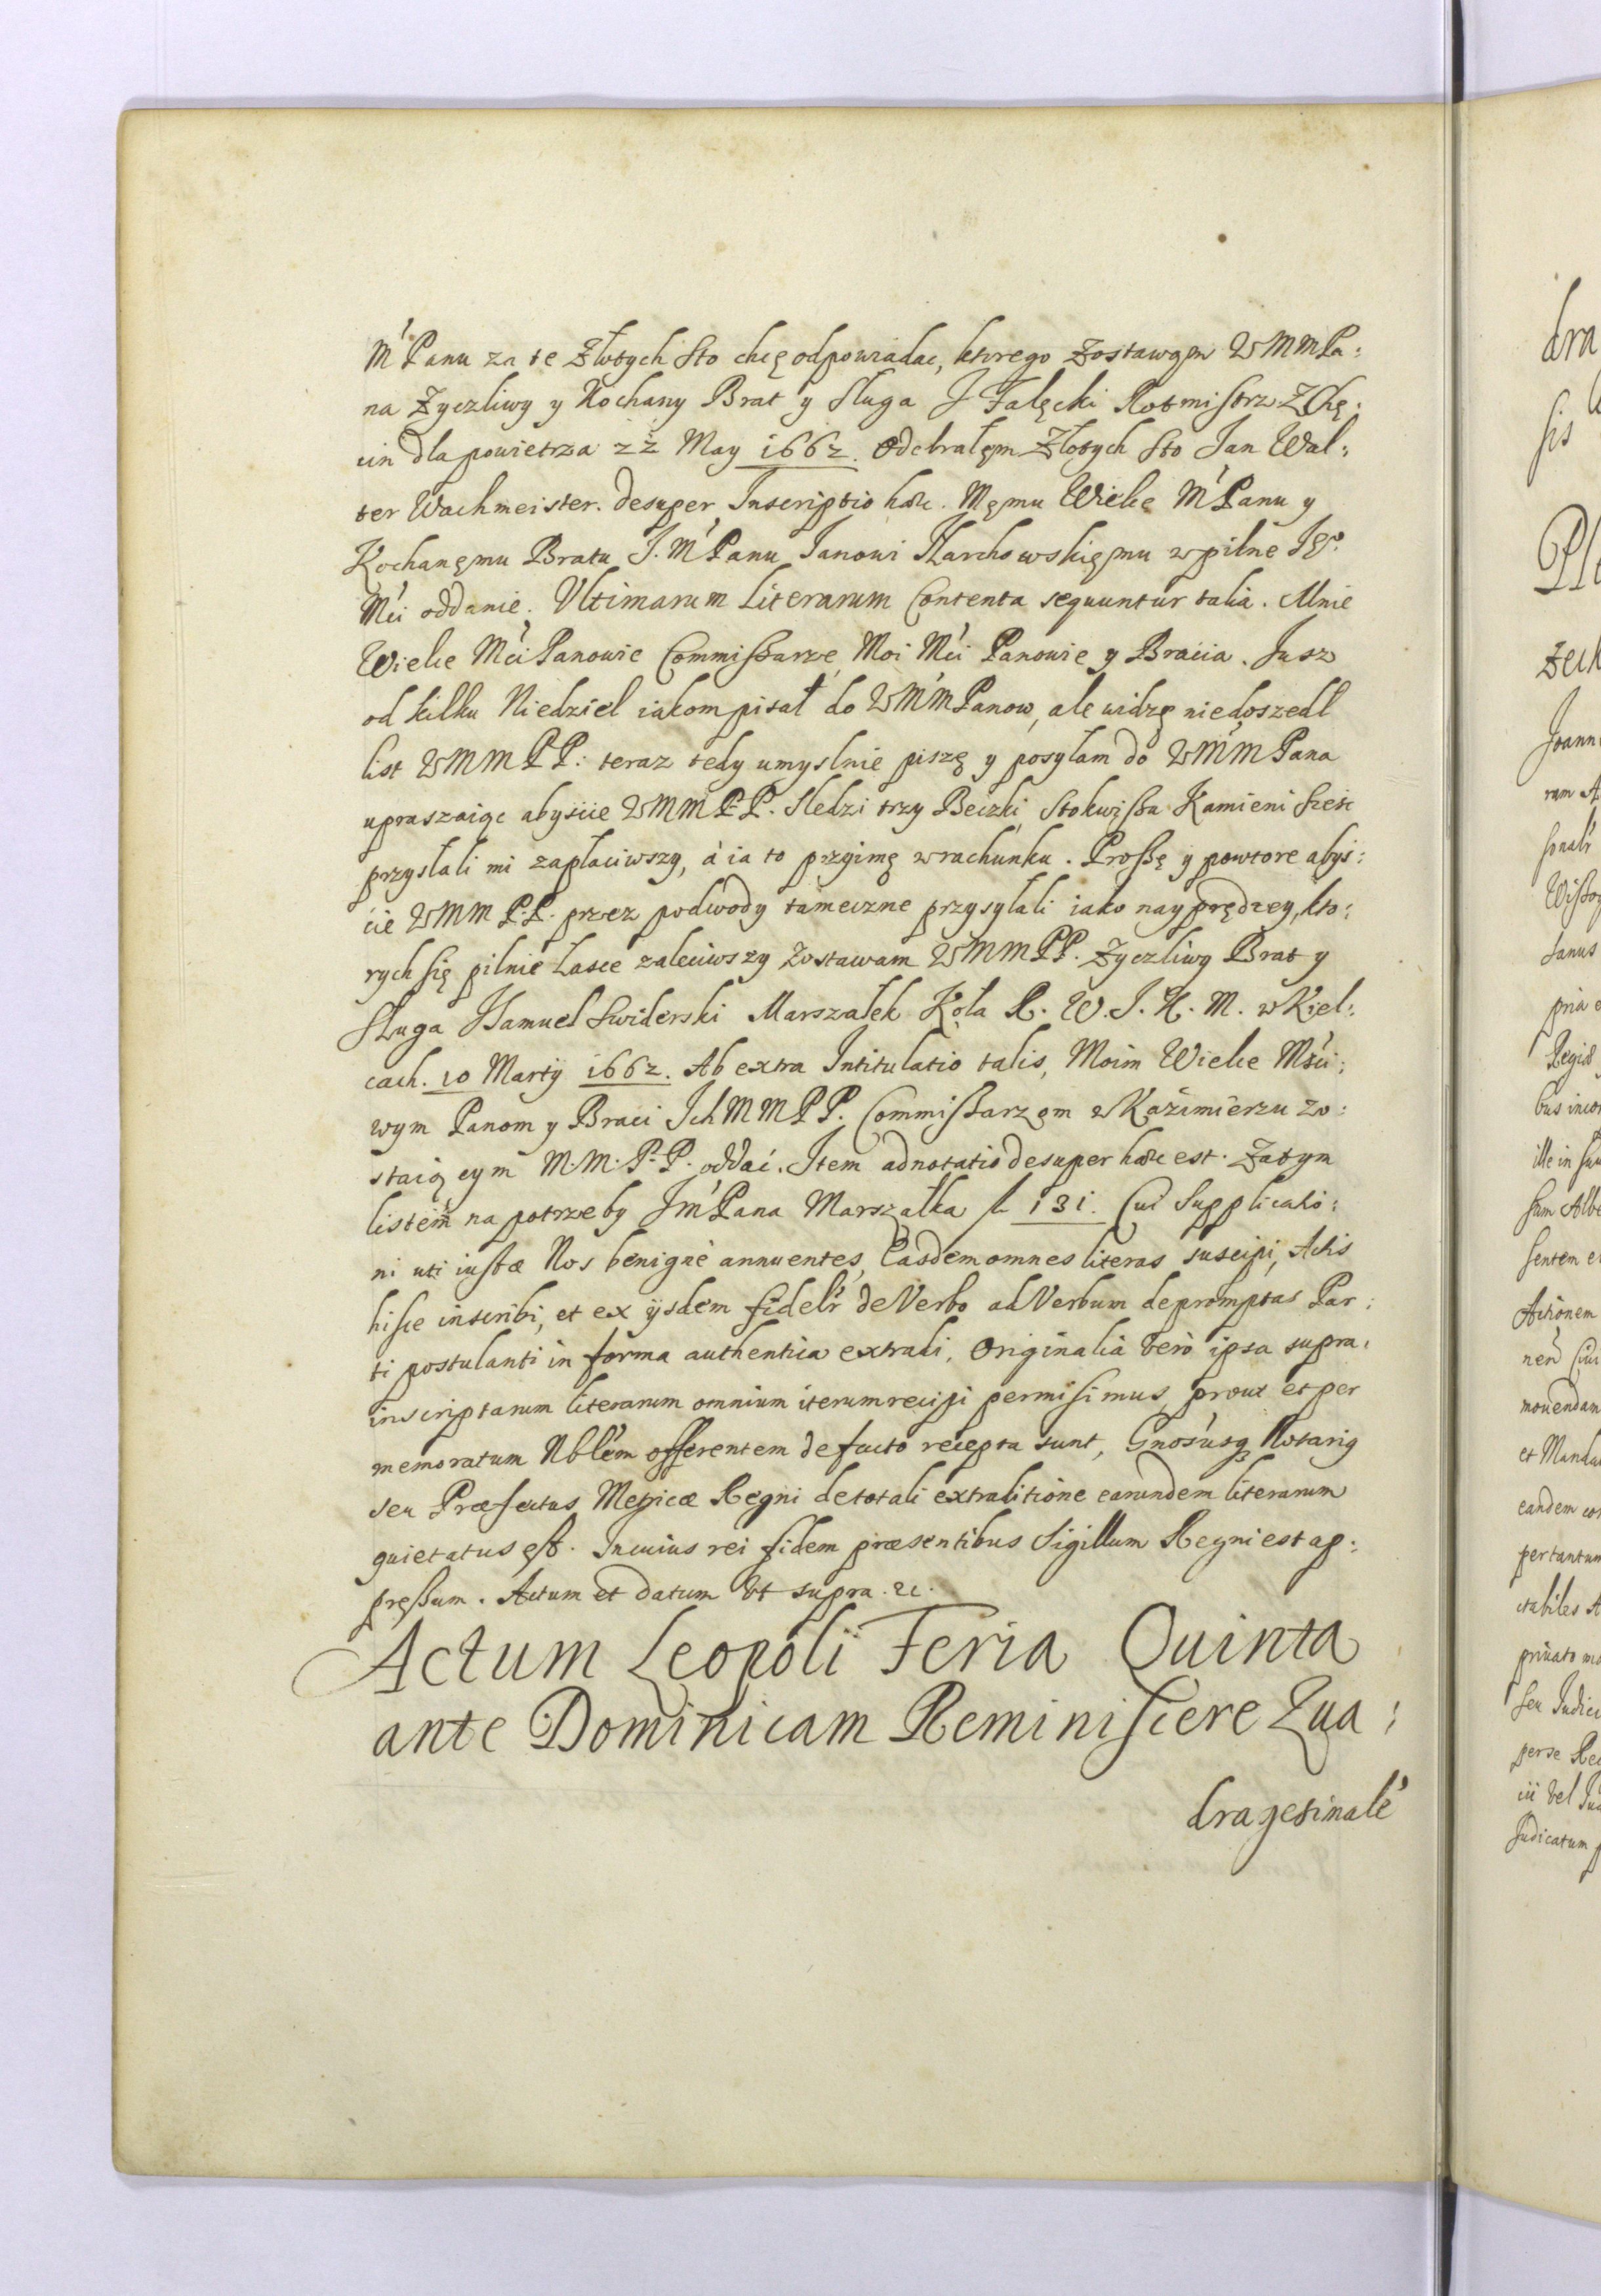 M' Panu za te Złotych Sto chcę odpowiadac, ktorego Zostawąm WMMPa:
na Zyczliwy y Kochany Brat y Sługa J Falęcki Rotmistrz Z Chę:
cin dla powietrza 22 May 1662. Odebrałęm Złotych Sto Jan Wal:
ter Wachmeister. desuper Inscriptio hæc. Męmu Wielce M' Panu y
Kochanęmu Bratu J. M' Panu Janowi Karchowskięmu w pilne Jęo
Mći oddanie. Vltimarum Literarum Contenta sequuntur talia. Mnie
Wielce Mći Panowie Commissarze Moi Mći Panowie y Bracia. Jusz
od kilku Niedziel iakom pisał do WMMPanow, ale widzę niedoszedł
list WMMPP: teraz tedy umyslnie piszę y posyłam do WMMPana
upraszaiąc abyscie WMMPP. Sledzi trzy Beczki Stokwisza Kamieni sześc
przysłali mi zapłaciwszy, à ia to przyimę w rachunku. Proszę y powtore abys:
cie WMM P.P. przez podwody tameczne przysyłali iako nayprędzey, kto:
rych się pilnie Łasce zaleciwszy Zostawam WMMPP. Zyczliwy Brat y
Sługa Samuel Swiderski Marszałek Koła R. W. J. K. M. w Kiel:
cach. 10 Martij 1662. Ab extra Intitulatio talis, Moim Wielce Mści:
wym Panom y Braci Ich MMPP. Commissarzom w Kazimierzu Zo:
staiącym M. M. P. P. oddać. Item adnotatio desuper hæc est. Zatym
listem na potrzeby Jm' Pana Marszałka fl 131. Cui Supplicatio:
ni uti iustæ Nos benignè annuentes, Easdem omnes literas suscipi, Actis
hisce inscribi, et ex ijsdem fidelr' de Verbo ad Verbum depromptas Par:
ti postulanti in forma authentica extradi, Originalia verò ipsa supra:
inscriptarum literarum omnium iterum recipi permisimus, prout et per
memoratum Nblem offerentem de facto recepta sunt, Gnosusq Notarig
seu Præfectus Metricæ Regni de totali extraditione earundem literarum
quietatus est. In cuius rei fidem præsentibus Sigillum Regni est ap:
pręssum. Actum et datum Vt supra. &c.
Actum Leopoli Feria Quinta
ante Dominicam Reminiscere Qua:
dragesimale'